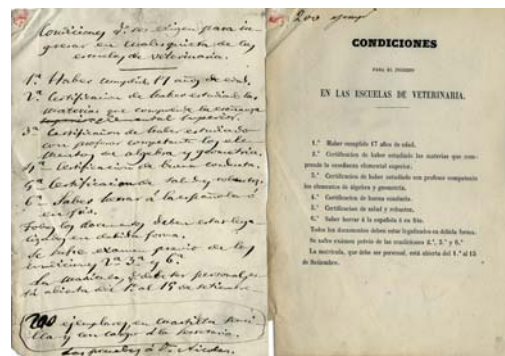 Condiciones q.e se exigen para in-
gresar en cualquiera de las
escuelas de veterinaria.
1.ª Haber cumplido 17 años de edad.
2.ª Certificacion de haber estudiado las
materias que comprende la enseñanza
elemental superior.
3.ª Certificacion de haber estudiado
con profesor competente los ele-
mentos de algebra y geometria.
4.ª Certificacion de buena conducta.
5.ª Certificacion de salud y robustez.
6.ª Saber herrar á la española ó
en frio.
Todos los documentos deben estar lega-
lizados en debida forma.
Se sufre examen previo de las
condiciones 2.ª 3.ª y 6.ª
La matricula, q.e debe ser personal, es-
tá abierta del 1.º al 15 de setiembre
200 ejemplares, en cuartilla senci-
lla y con cargo á la Secretaria.
Las pruebas á D. Nicolas.
200 ejemp.
CONDICIONES
PARA EL INGRESO
EN LAS ESCUELAS DE VETERINARIA.
1.ª Haber cumplido 17 años de edad.
2.ª Certificacion de haber estudiado las materias que com-
prende la enseñanza elemental superior.
3.ª Certificacion de haber estudiado con profesor competente
los elementos de álgebra y geometría.
4.ª Certificacion de buena conducta.
5.ª Certificacion de salud y robustez.
6.ª Saber herrar á la española ó en frio.
Todos los documentos deben estar legalizados en debida forma.
Se sufre exámen prévio de las condiciones 2.ª, 3.ª y 6.ª
La matrícula, que debe ser personal, está abierta del 1.º al 15
de Setiembre.